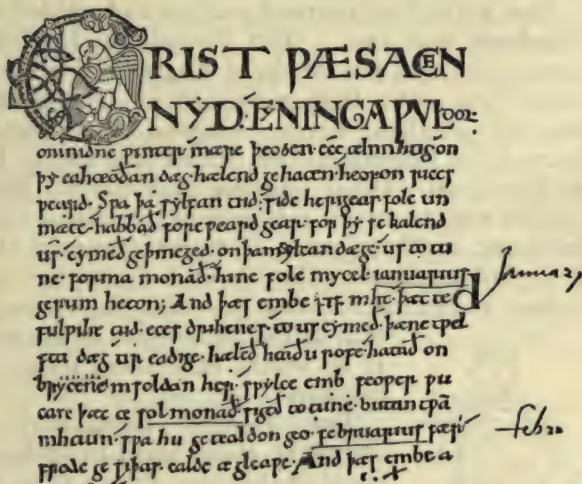 CRIST ǷÆS ACEN
NYD. CYNINGA ǷVLDOR.
on midne ƿinter mære þeoden. ece ælmihtig. on
þy eahteoðan dæg. hælend gehaten heofon rices
ƿeard. Sƿa þa sylfan tiid. side herigeas folc un
mæte. habbað foreƿeard gear. for þy se kalend
us. cymeð geþincged. on þam ylcan dæge. us to tu
ne. forma monað. hine folc mycel. ianuarius
gerum heton; And þæs embe fif niht. þætte January
fulƿiht tiid. eces drihtnes. to us cymeð. þæne tƿelf
ta dæg tir eadige. hæleð heaðu rofe. hatað on
brytene in foldan her. sƿylce emb feoƿer ƿu
can þætte solmonað. sigeð to tune. butan tƿa
m nihtum. sƿa hit getealdon geo. februarius fær. febru
frode gesiþas. ealde ægleaƿe. And þæs embe a